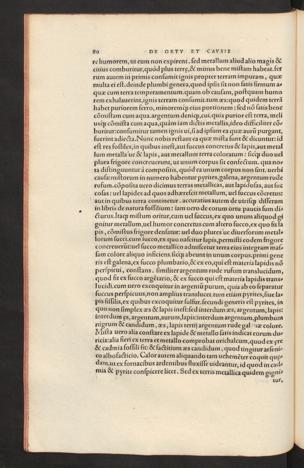 80 DE ORTV ET CAVSIS
re humorem, ut eum non expirent, sed metallum aliud alio magis &
citius comburitur, quod plus terræ, & minus bene mistam habeat. fer
rum autem in primis consumit ignis propter terram impuram, quæ
multa ei est. deinde plumbi genera, quod ipsis sit non satis summa at
quæ cum terra temperamentum. quam ob causam, postquam humo
rem exhauserint, ignis terram consumit. tum æs: quod quidem terrā
habet puriorem ferro, minorem que eius portionem: sed nō satis bene
cōmistam cum aqua. argentum denique, cui, quia purior est terra, meli
usque cōmista cum aqua, quàm iam dictis metallis, ideo difficilius cō-
buritur: consumitur tamen ignis ui, si ad ipsum ea quæ aurū purgant,
fuerint adiecta. Nunc nobis restant ea quæ mista sunt & dicuntur: id
est res fossiles, in quibus inest, aut succus concretus & lapis, aut metal
lum metalla'ue & lapis, aut metallum terra coloratum: siue duo uel
plura frigore concreuerunt, ut unum corpus sit confectum. quæ no-
ta distinguuntur à compositis, quòd ea unum corpus non sint. uerbi
causa: mistorum in numero habentur pyrites, galena, argentum rude
rufum. cōposita uero dicimus terras metallicas, aut lapidosas, aut fis-
cosas: uel lapides ad quos adhærescit metallum, uel succus cōcretus:
aut in quibus terra continetur. accuratius autem de utrisque disseram
in libris de natura fossilium: iam uero de eorum ortu paucis sum di-
cturus. Itaque mistum oritur, cum uel succus, ex quo unum aliquod gi
gnitur metallum, uel humor concretus cum altero succo, ex quo fit la
pis, cōmistus frigore densatur: uel duo plures'ue diuersorum metal-
lorum succi cum succo, ex quo nascitur lapis, permisti eodem frigore
concreuerīt: uel succo metallico admiscetur terra eius integram mas-
sam colore aliquo inficiens. sicque abeunt in unum corpus. primi gene
ris est galena, ex succo plumbario, & ex eo, qui est materia lapidis nō
perspicui, constans. similiter argentum rude rufum translucidum,
quod fit ex succo argētario, & ex succo qui est materia lapidis trans-
lucidi. cum uero excoquitur in argentū purum, quia ab eo separatur
succus perspicuus, non amplius translucet. tum etiam pyrites, siue la-
pis fissilis, ex quibus excoquitur sulfur. secundi generis est pyrites, in
quo non simplex æs & lapis inest: sed interdum æs, argentum, lapis:
interdum æs, argentum, aurum, lapis: interdum argentum, plumbum
nigrum & candidum, æs, lapis. tertij argentum rude galenæ colore.
Mista uero alia constare ex lapide & metallo satis indicat eorum du-
ricia: alia fieri ex terra et metallo comprobat orichalcum, quod ex ære
& cadmia fossili fit: & factitium æs candidum, quod tingitur arseni-
co albo factitio. Calor autem aliquando tam uehemēter coquit quę-
dam, ut ex fornacibus ardentibus fluxisse uideantur, id quod in cad
mia & pyrite conspicere licet. Sed ex terris metallica quidem gignū-
tur,